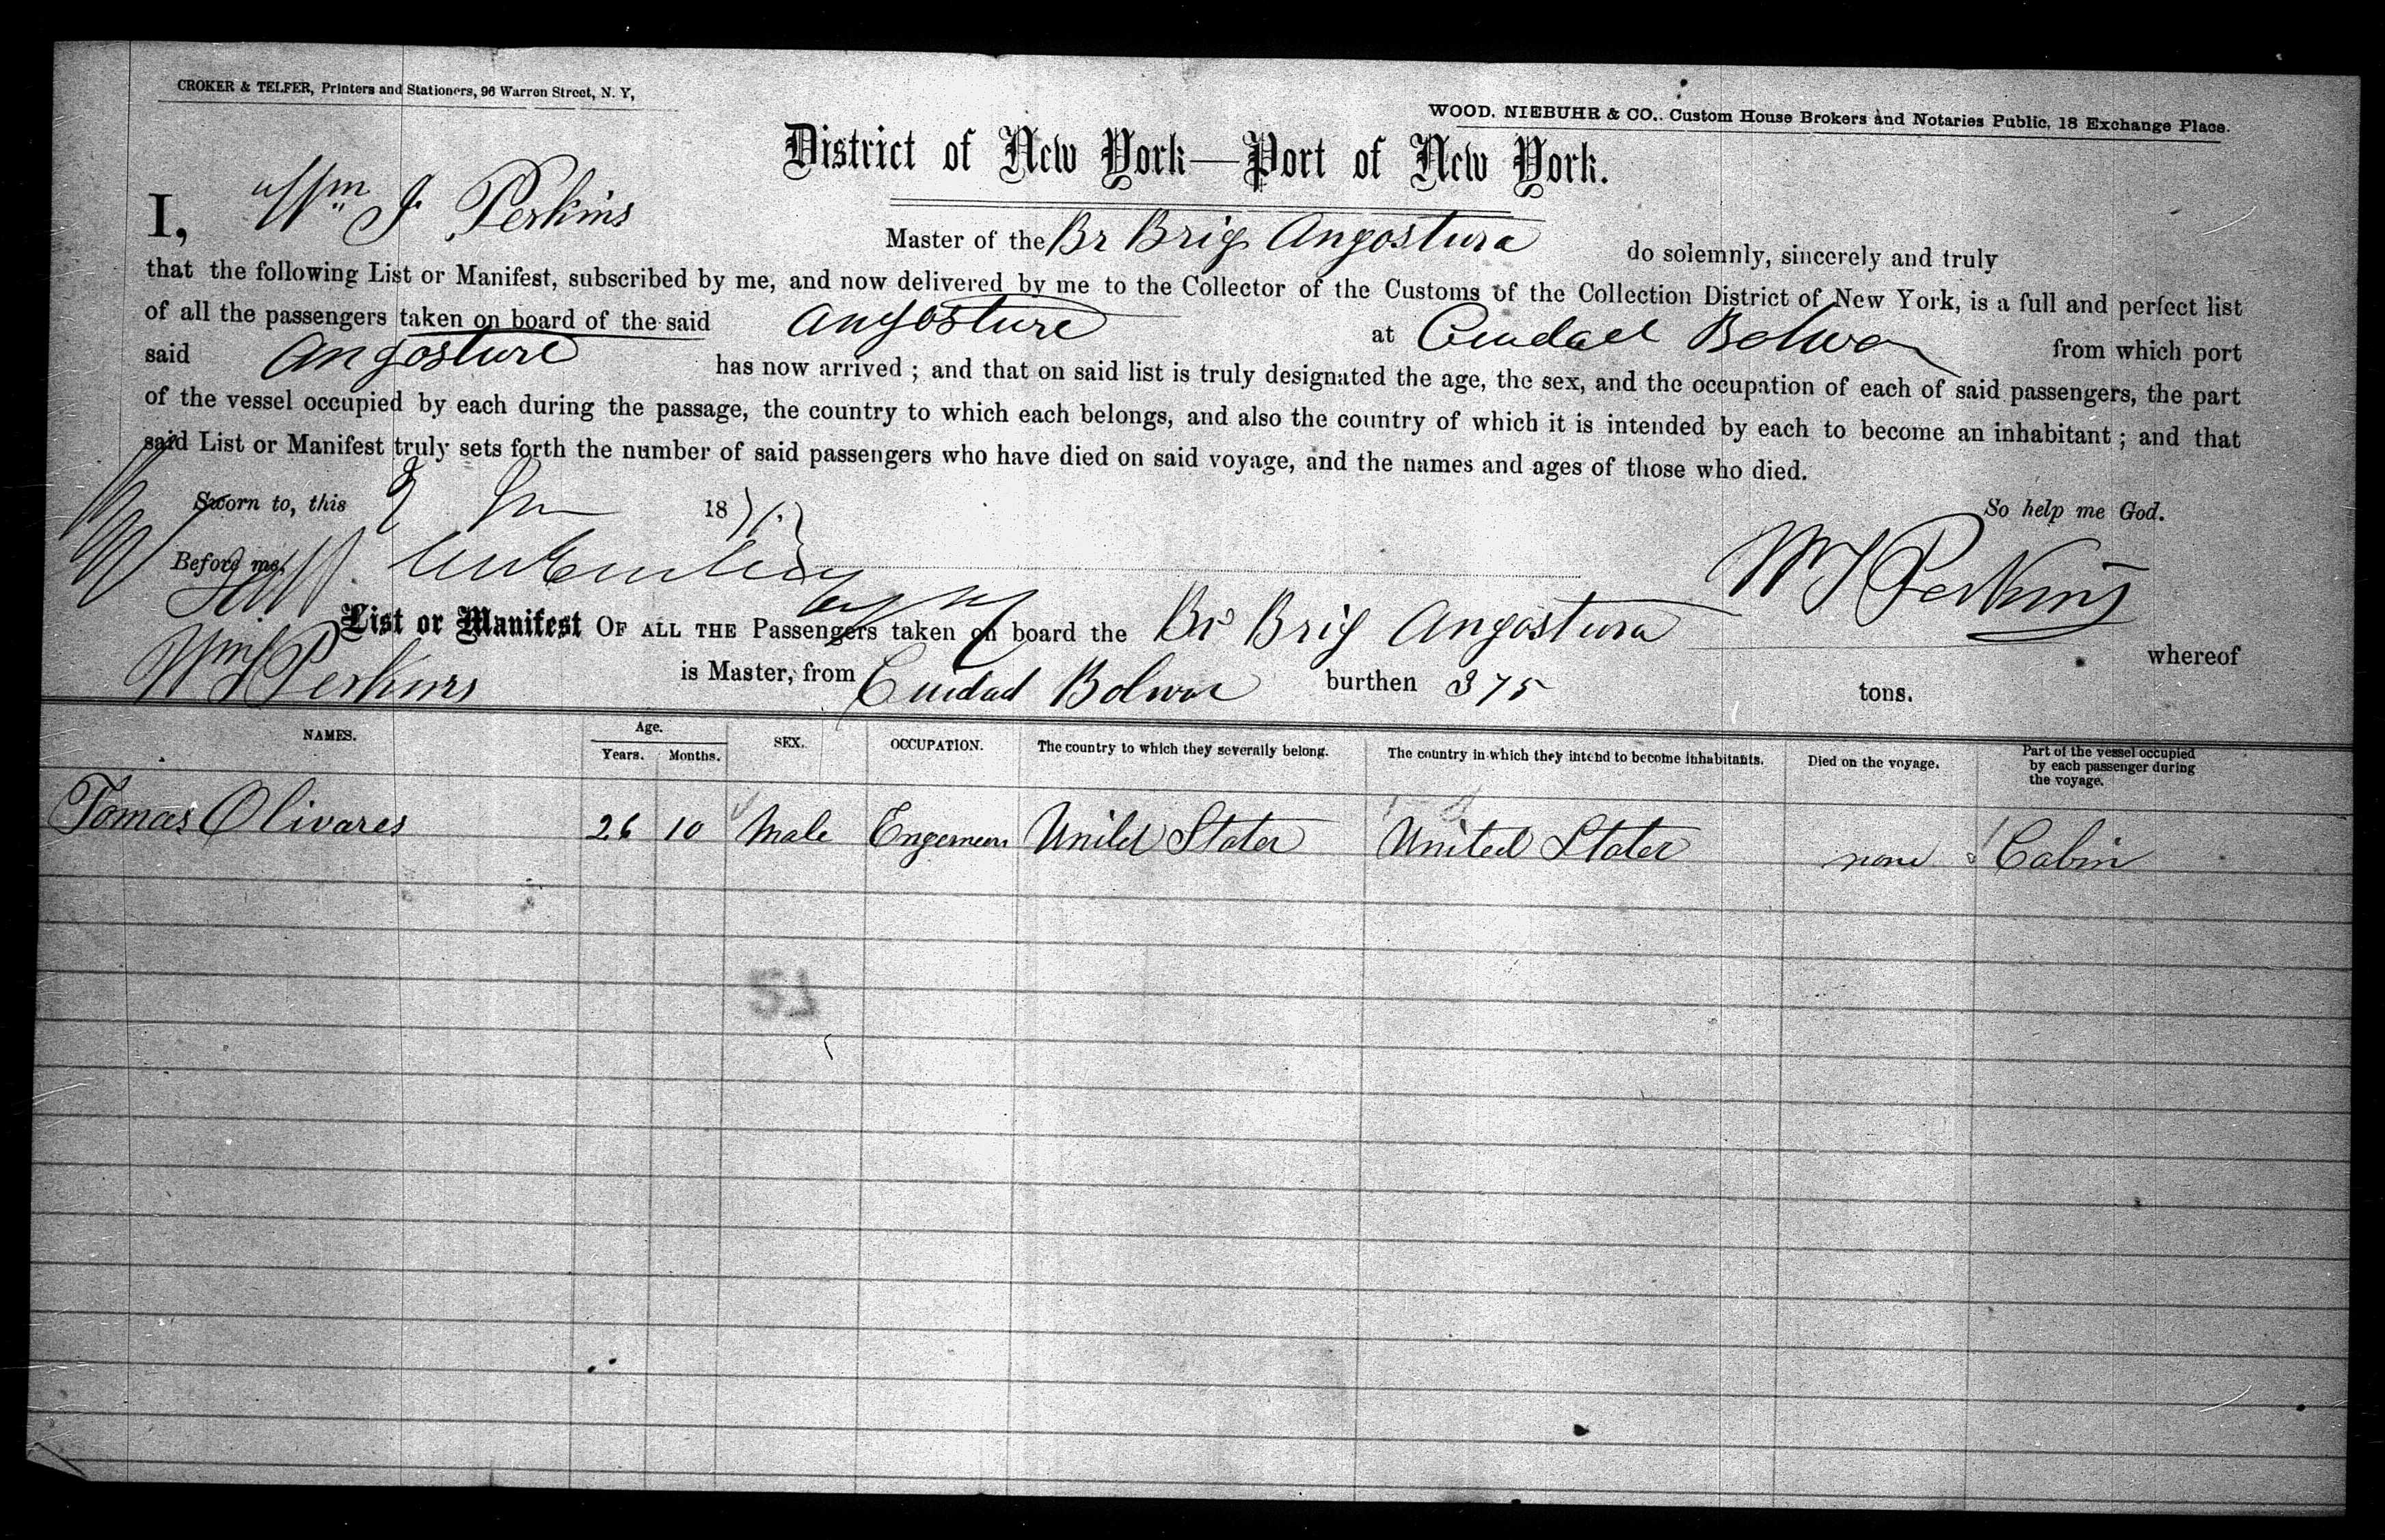 CROKER & TELFER, Printers and Stationers, 96 Warren Street, N. Y,
WOOD, NIEBUHR & CO., Custom House Brokers and Notaries Public, 18 Exchange Place.
District of New York—Port of New York.
I, Wm J. Perkins Master of the Br Brig Angostura do solemnly, sincerely and truly
that the following List or Manifest, subscribed by me, and now delivered by me to the Collector of the Customs of the Collection District of New York, is a full and perfect list
of all the passengers taken on board of the said Angosture at Ciudad Bolivar from which port
said Angosture has now arrived ; and that on said list is truly designated the age, the sex, and the occupation of each of said passengers, the part
of the vessel occupied by each during the passage, the country to which each belongs, and also the country of which it is intended by each to become an inhabitant ; and that
said List or Manifest truly sets forth the number of said passengers who have died on said voyage, and the names and ages of those who died.
Sworn to, this 18 So help me God.
Before me, W J Perkins
List or Manifest OF ALL THE Passengers taken on board the Br Brig Angostura whereof
Wm J Perkins is Master, from Ciudad Bolivar burthen 375 tons.
NAMES. Age. Years. Months. SEX. OCCUPATION. The country to which they severally belong. The country in which they intend to become inhabitants. Died on the voyage. Part of the vessel occupied by each passenger during the voyage.
Tomas Olivares 26 10 Male United States United States none Cabin
51